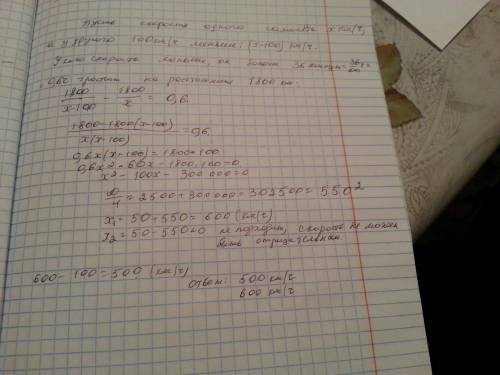 Пусть скорость одного самолёта x км/ч,
а у другого 100 км/ч меньше: (x-100) км/ч.
У кого скорость меньше, он больше 36 минут = 36/60
= 0,6ч тратит на расстояние 1800 км.
1800/x-100 - 1800/x = 0,6.
1800-1800(x-100)/x(x-100) = 0,6.
0,6x(x-100) = 1800·100
0,6x² - 60x - 1800·100 = 0
x² - 100x - 300 000 = 0
D/4 = 2500 + 300 000 = 302500 = 550²
x₁ = 50 + 550 = 600 (км/ч)
x₂ = 50 - 550 < 0 не подходит, скорость не может
быть отрицательным.
600 - 100 = 500 (км/ч)
Ответ: 500 км/ч
600 км/ч